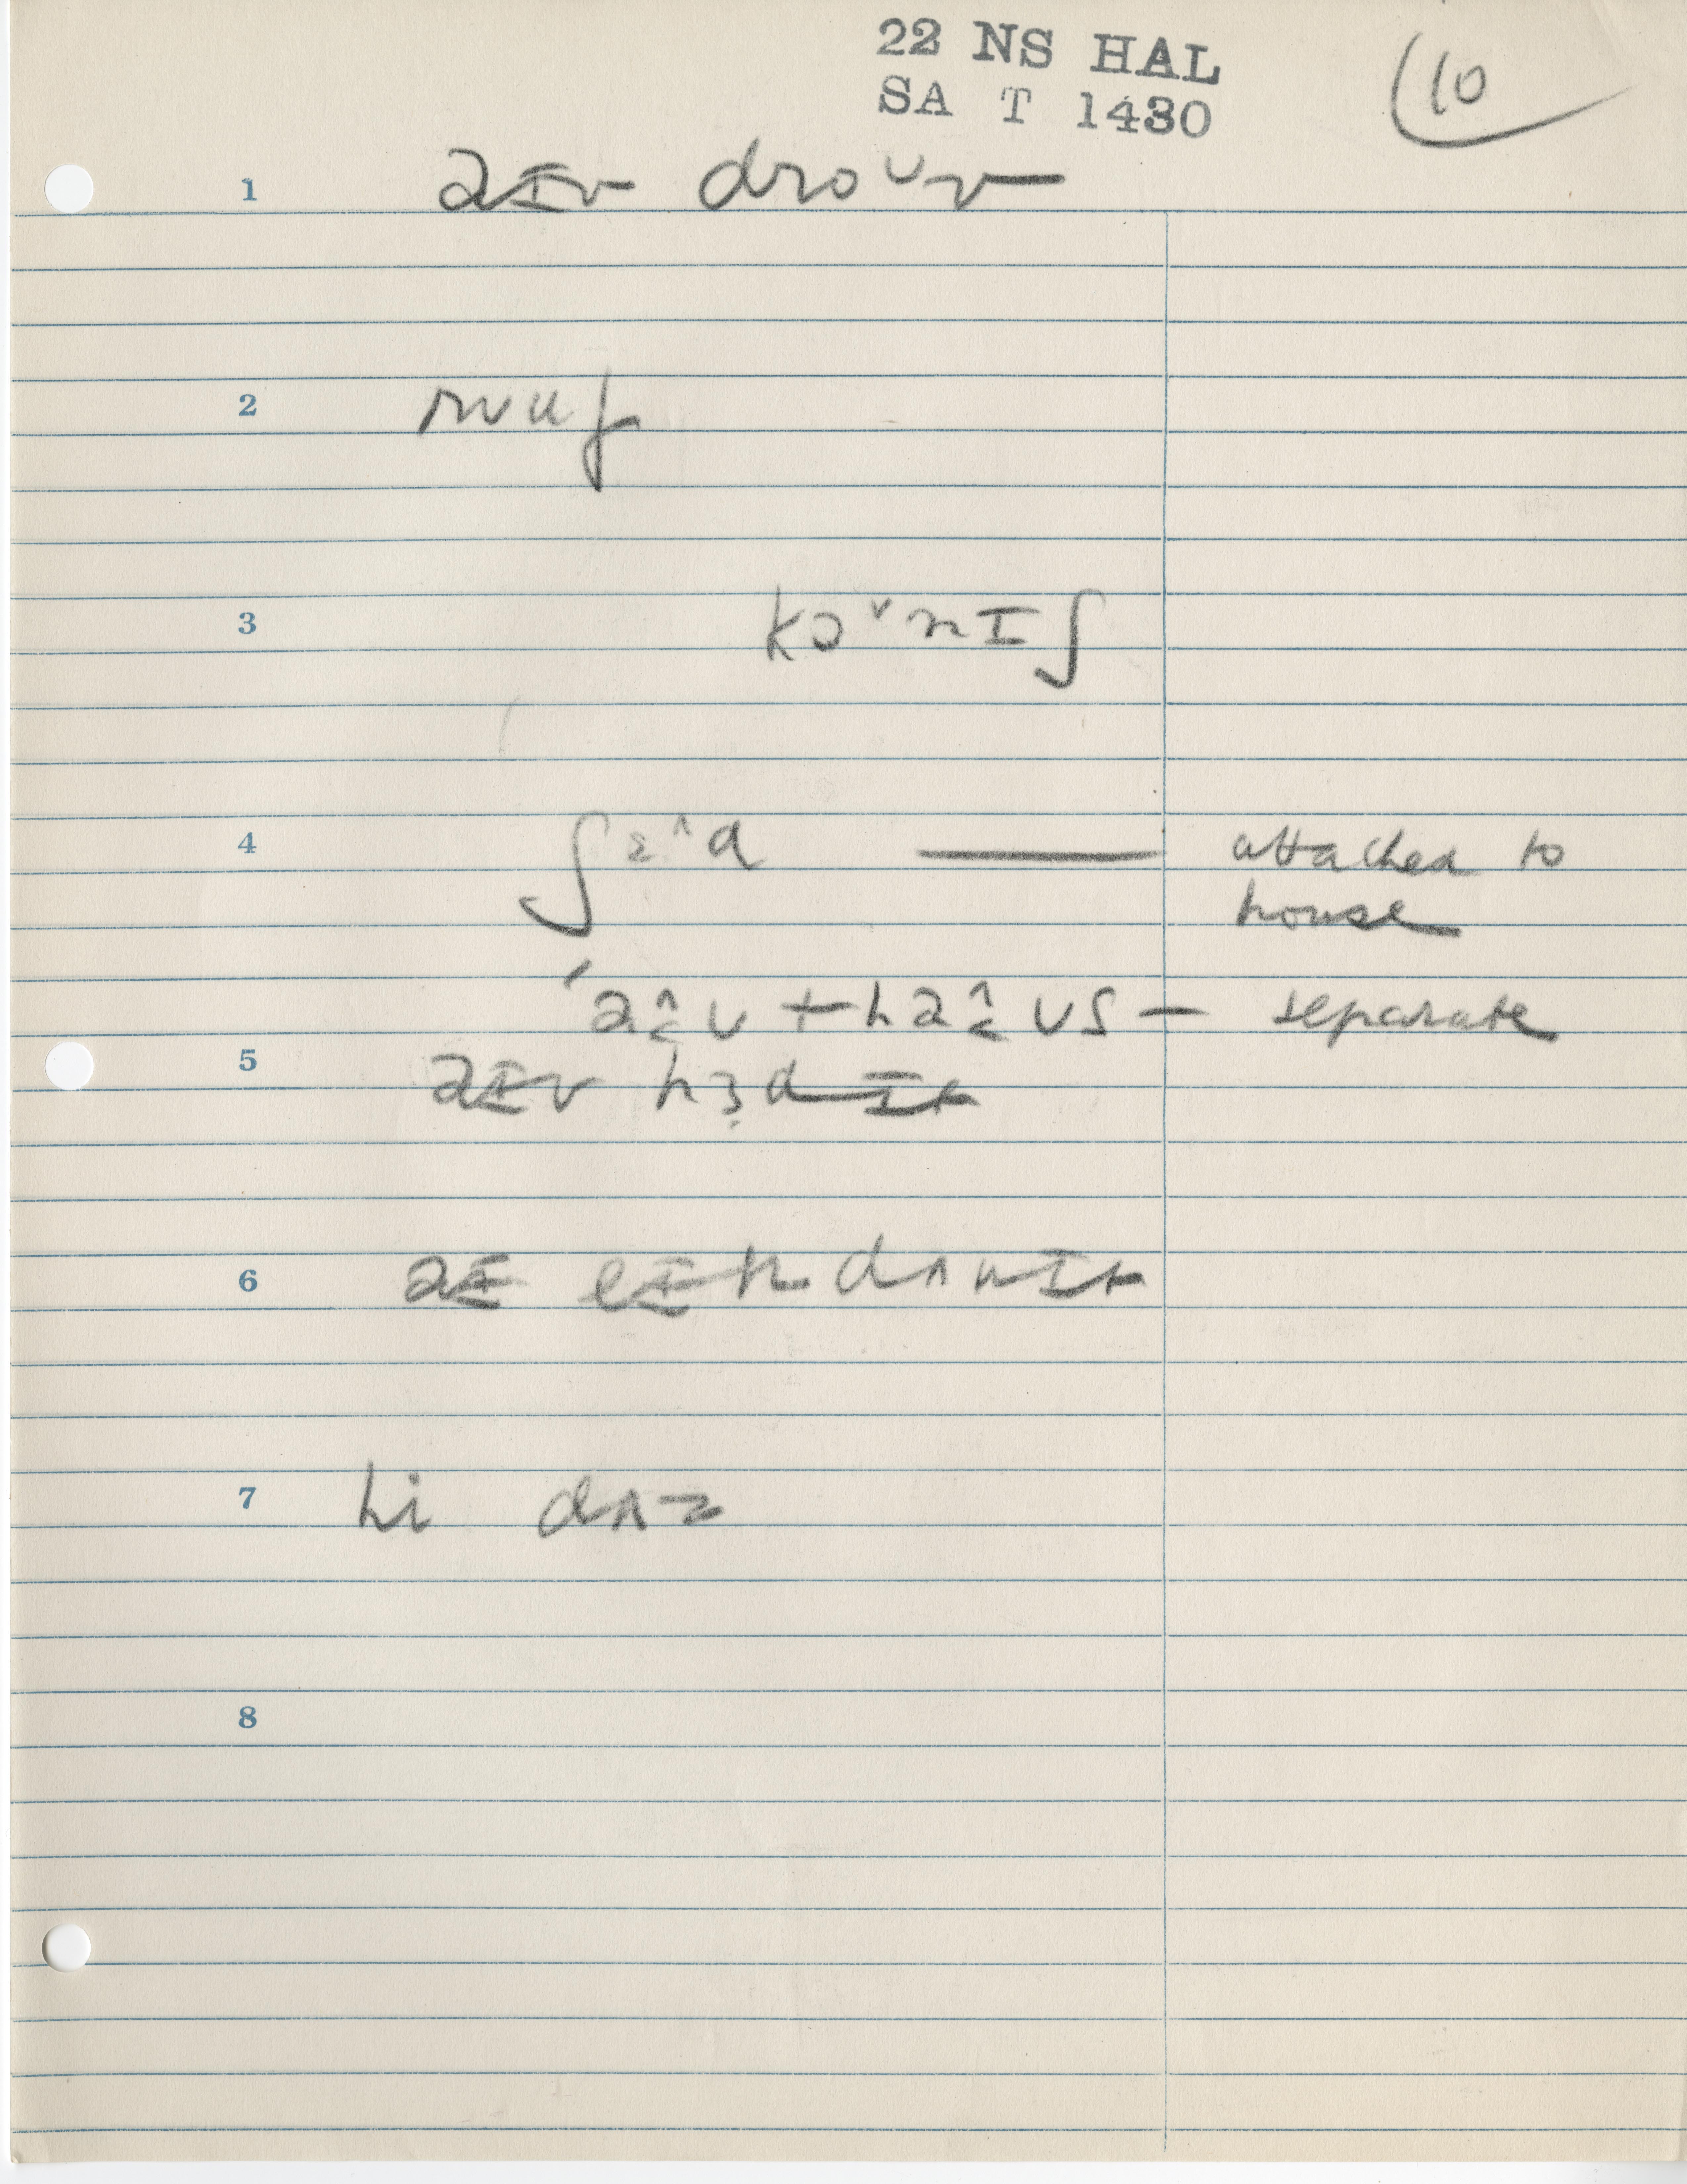 22 NS HAL
SA T 1430
10
1 aɪv droᴜv
2 rᴜuf
3 kɔˇnɪʃ
4 ʃɛ^d — attached to
house
ˈaᴜthaᴜs — separate
5 aɪv hɜdɪt
6 aɪ eɪndʌnɪt
7 hi dʌz
8